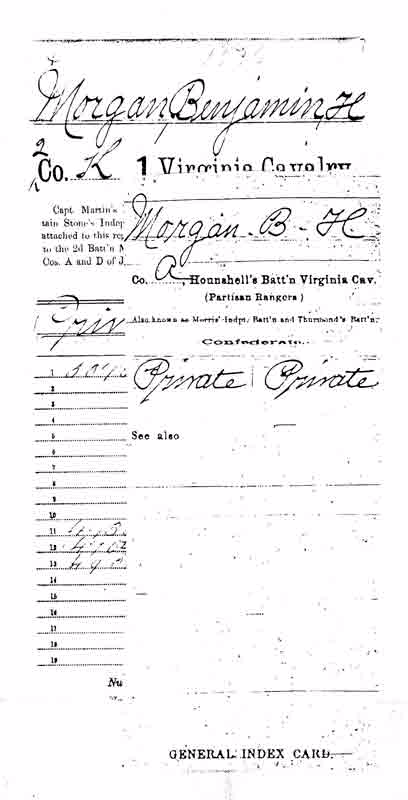 Morgan, Benjamin, H
2 Co. K 1 Virginia Cavalry
Capt. Martin's
tain Stone's Indep
attached to this reg
to the 2d Batt'n M
Cos. A and D of J
Morgan - B - H
Co. A, Hounshell's Batt'n Virginia Cav.
(Partisan Rangers)
Also known as Morris' Indpt. Batt'n and Thurmond's Batt'n.
Confederate.
Priv
Private | Private
See also
1
2
3
4
5
6
7
8
9
10
11
12
13
14
15
16
17
18
19
Nu
GENERAL INDEX CARD.